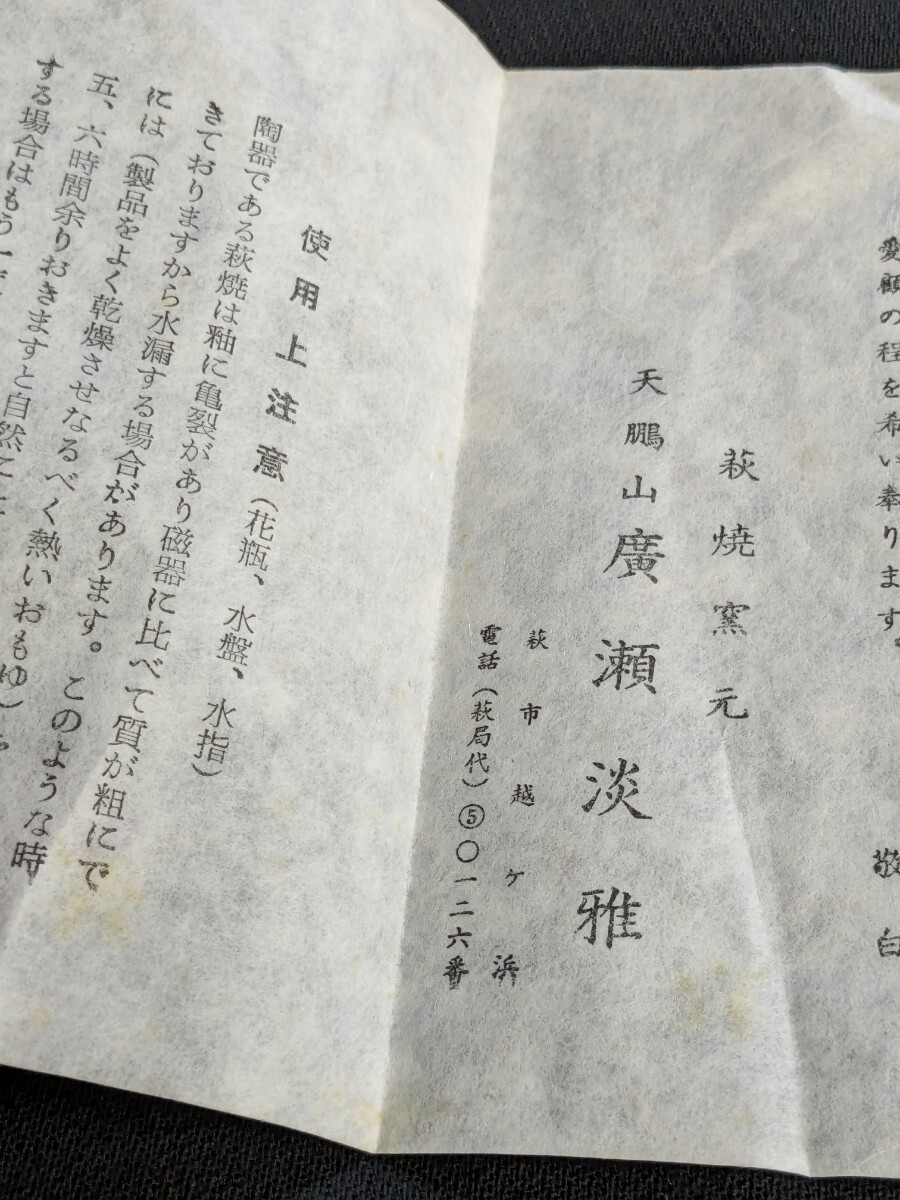 愛顧の程を希い奉ります。
敬白
萩焼窯元
天鵬山廣瀬淡雅
萩市越ケ浜
電話(萩局代)⑤〇一二六番
使用上注意(花瓶、水盤、水指)
陶器である萩焼は釉に亀裂があり磁器に比べて質が粗にで
きておりますから水漏する場合があります。このような時
には(製品をよく乾燥させなるべく熱いおもゆ)を
五、六時間余りおきますと自然に
する場合はもう一